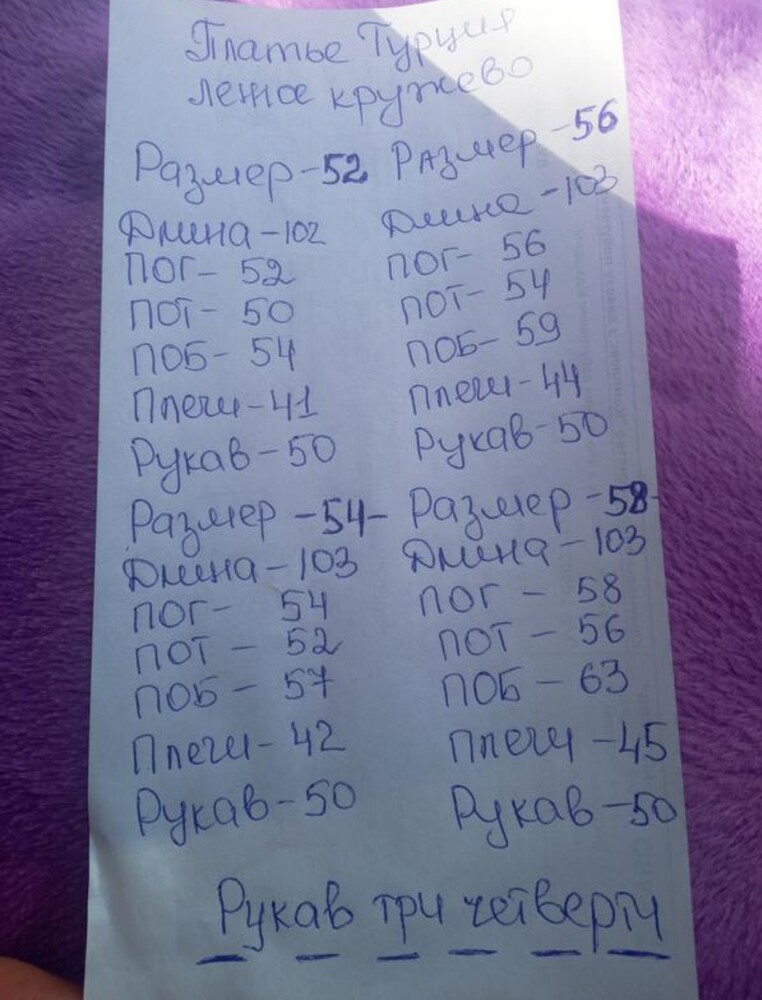 Платье Турция
летнее кружево
Размер-52 Размер-56
Длина-102 Длина-103
ПОГ-52 ПОГ-56
ПОТ-50 ПОТ-54
ПОБ-54 ПОБ-59
Плечи-41 Плечи-44
Рукав-50 Рукав-50
Размер-54- Размер-58-
Длина-103 Длина-103
ПОГ-54 ПОГ-58
ПОТ-52 ПОТ-56
ПОБ-57 ПОБ-63
Плечи-42 Плечи-45
Рукав-50 Рукав-50
Рукав три четверти